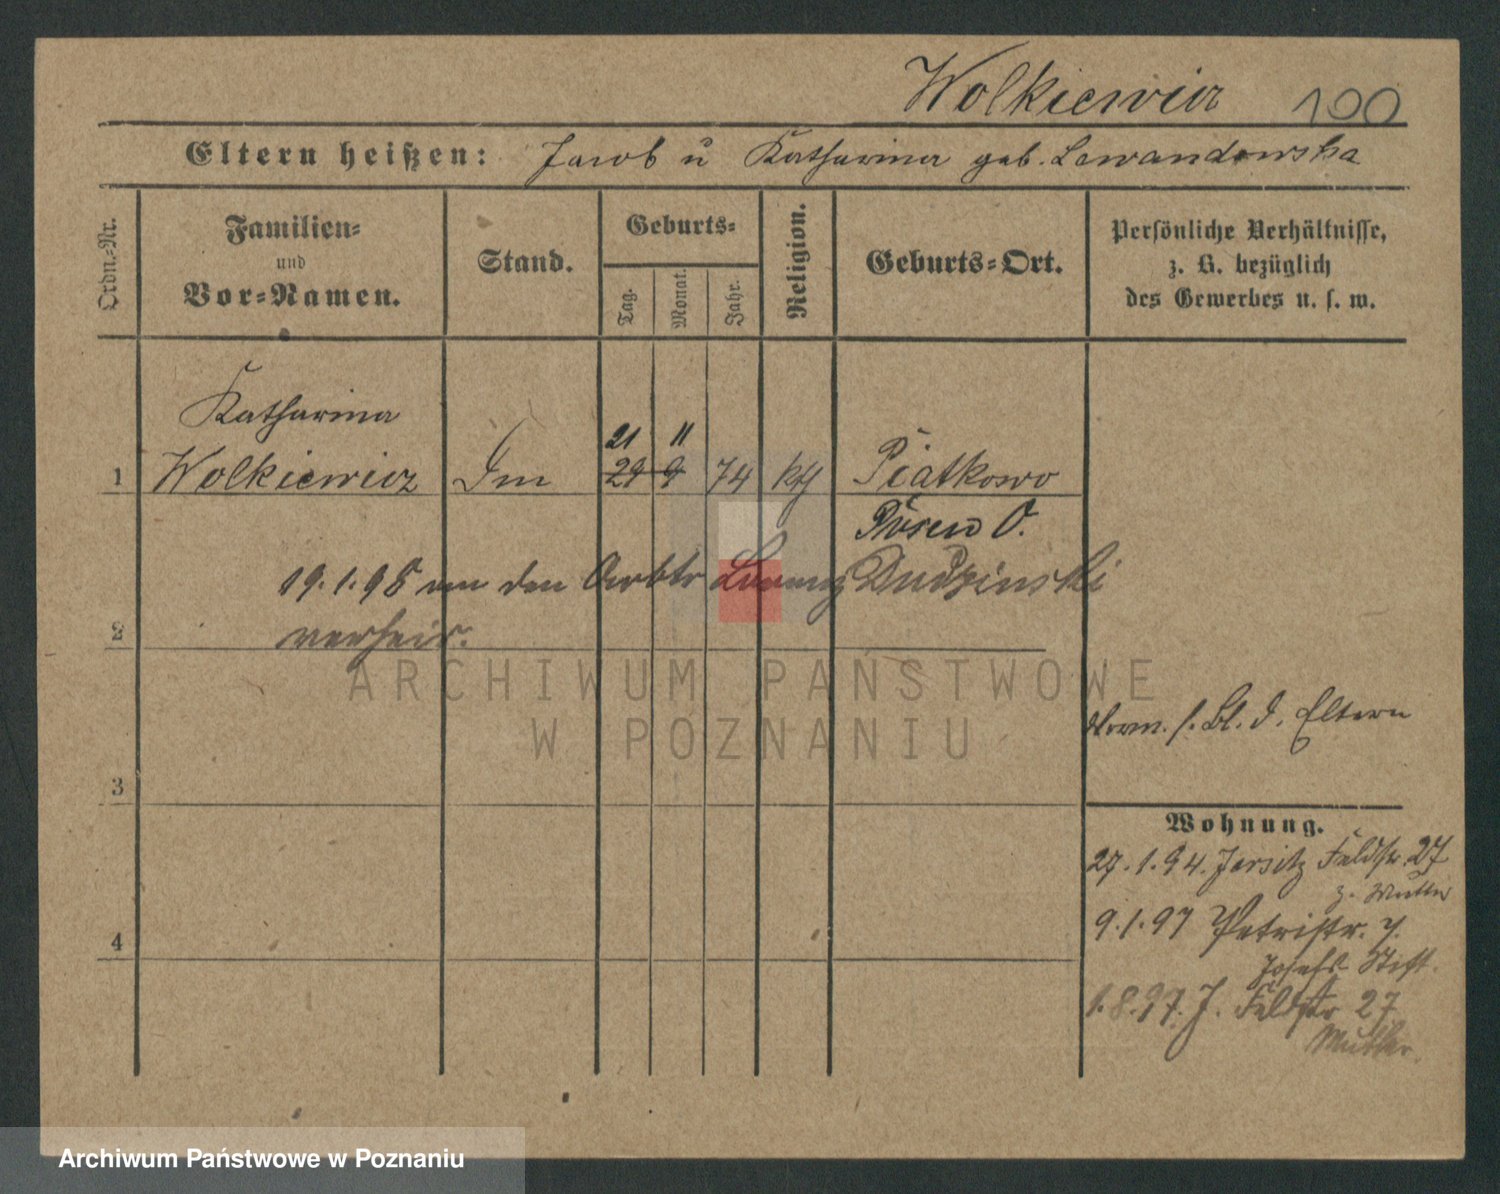 Wolkiewicz 100
Eltern heißen: Jacob u Katharina geb. Lewandowska
Ordn.-Nr.
Familien-
und
Vor-Namen.
Stand.
Geburts-
Tag.
Monat.
Jahr.
Religion.
Geburts-Ort.
Persönliche Verhältnisse,
z. B. bezüglich
des Gewerbes u. s. w.
Katharina
21 11
1 Wolkiewicz 29 9 74 kth Piatkowo
Posen O.
19.1.98 an den Arbtr Lorenz Dudzinski
2 verheir.
ARCHIWUM PAŃSTWOWE
W POZNANIU
s. Bl. d. Eltern
3
Wohnung.
27.1.94. Jersitz Feldstr. 27
z. Mutter
9.1.97 Petristr. 7.
4
Josefs Stift.
1.8.97. J. Feldstr 27
Mutter.
Archiwum Państwowe w Poznaniu